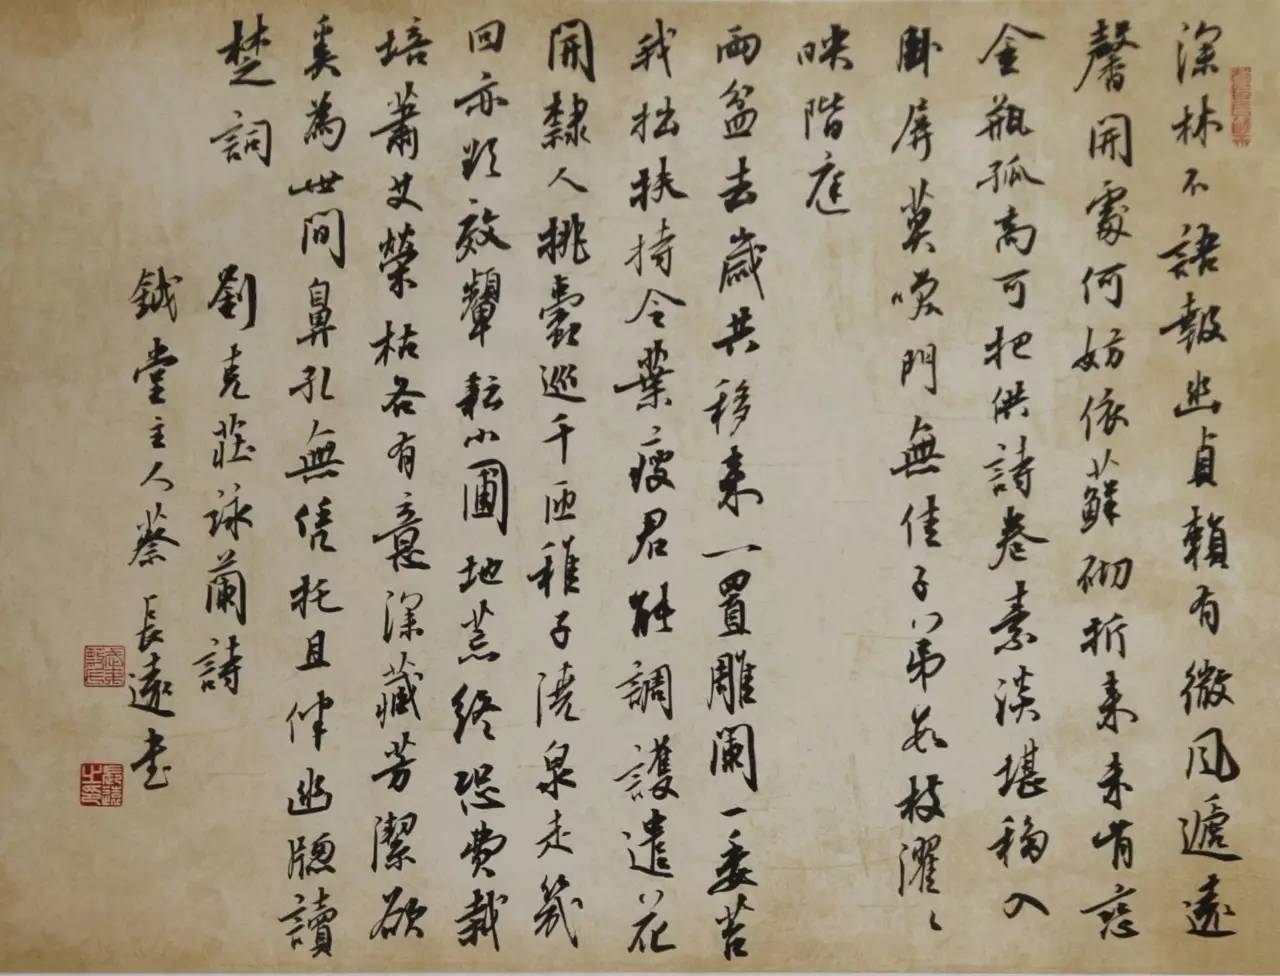 深林不語報幽貞賴有微風遞遠
馨開處何妨依蘚砌折來未肯戀
金瓶孤高可把供詩卷素淡堪移入
卧屏莫門無佳子弟數枝濯々
映階庭
兩盆去歲共移來一置雕闌一委苔
我拙扶持令葉瘦君能調護遣花
開隸人挑蠹巡千匝稚子澆泉走幾
回亦欲效顰耘小圃地荒終恐費栽
培蕭艾榮枯各有意深藏芳潔欲
奚為世間鼻孔無凭托且伴幽牕讀
楚詞
劉克莊詠蘭詩
鉞堂主人蔡長遠書